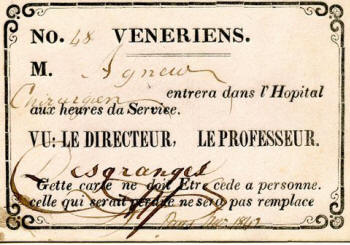 No. 48 VENERIENS.
M. Agnew
Chirurgien entrera dans l'Hopital
aux heures du Service.
VU: LE DIRECTEUR, LE PROFESSEUR.
Desgranges
Cette carte ne doit Etre cede a personne.
celle qui serait perdue ne sera pas remplace